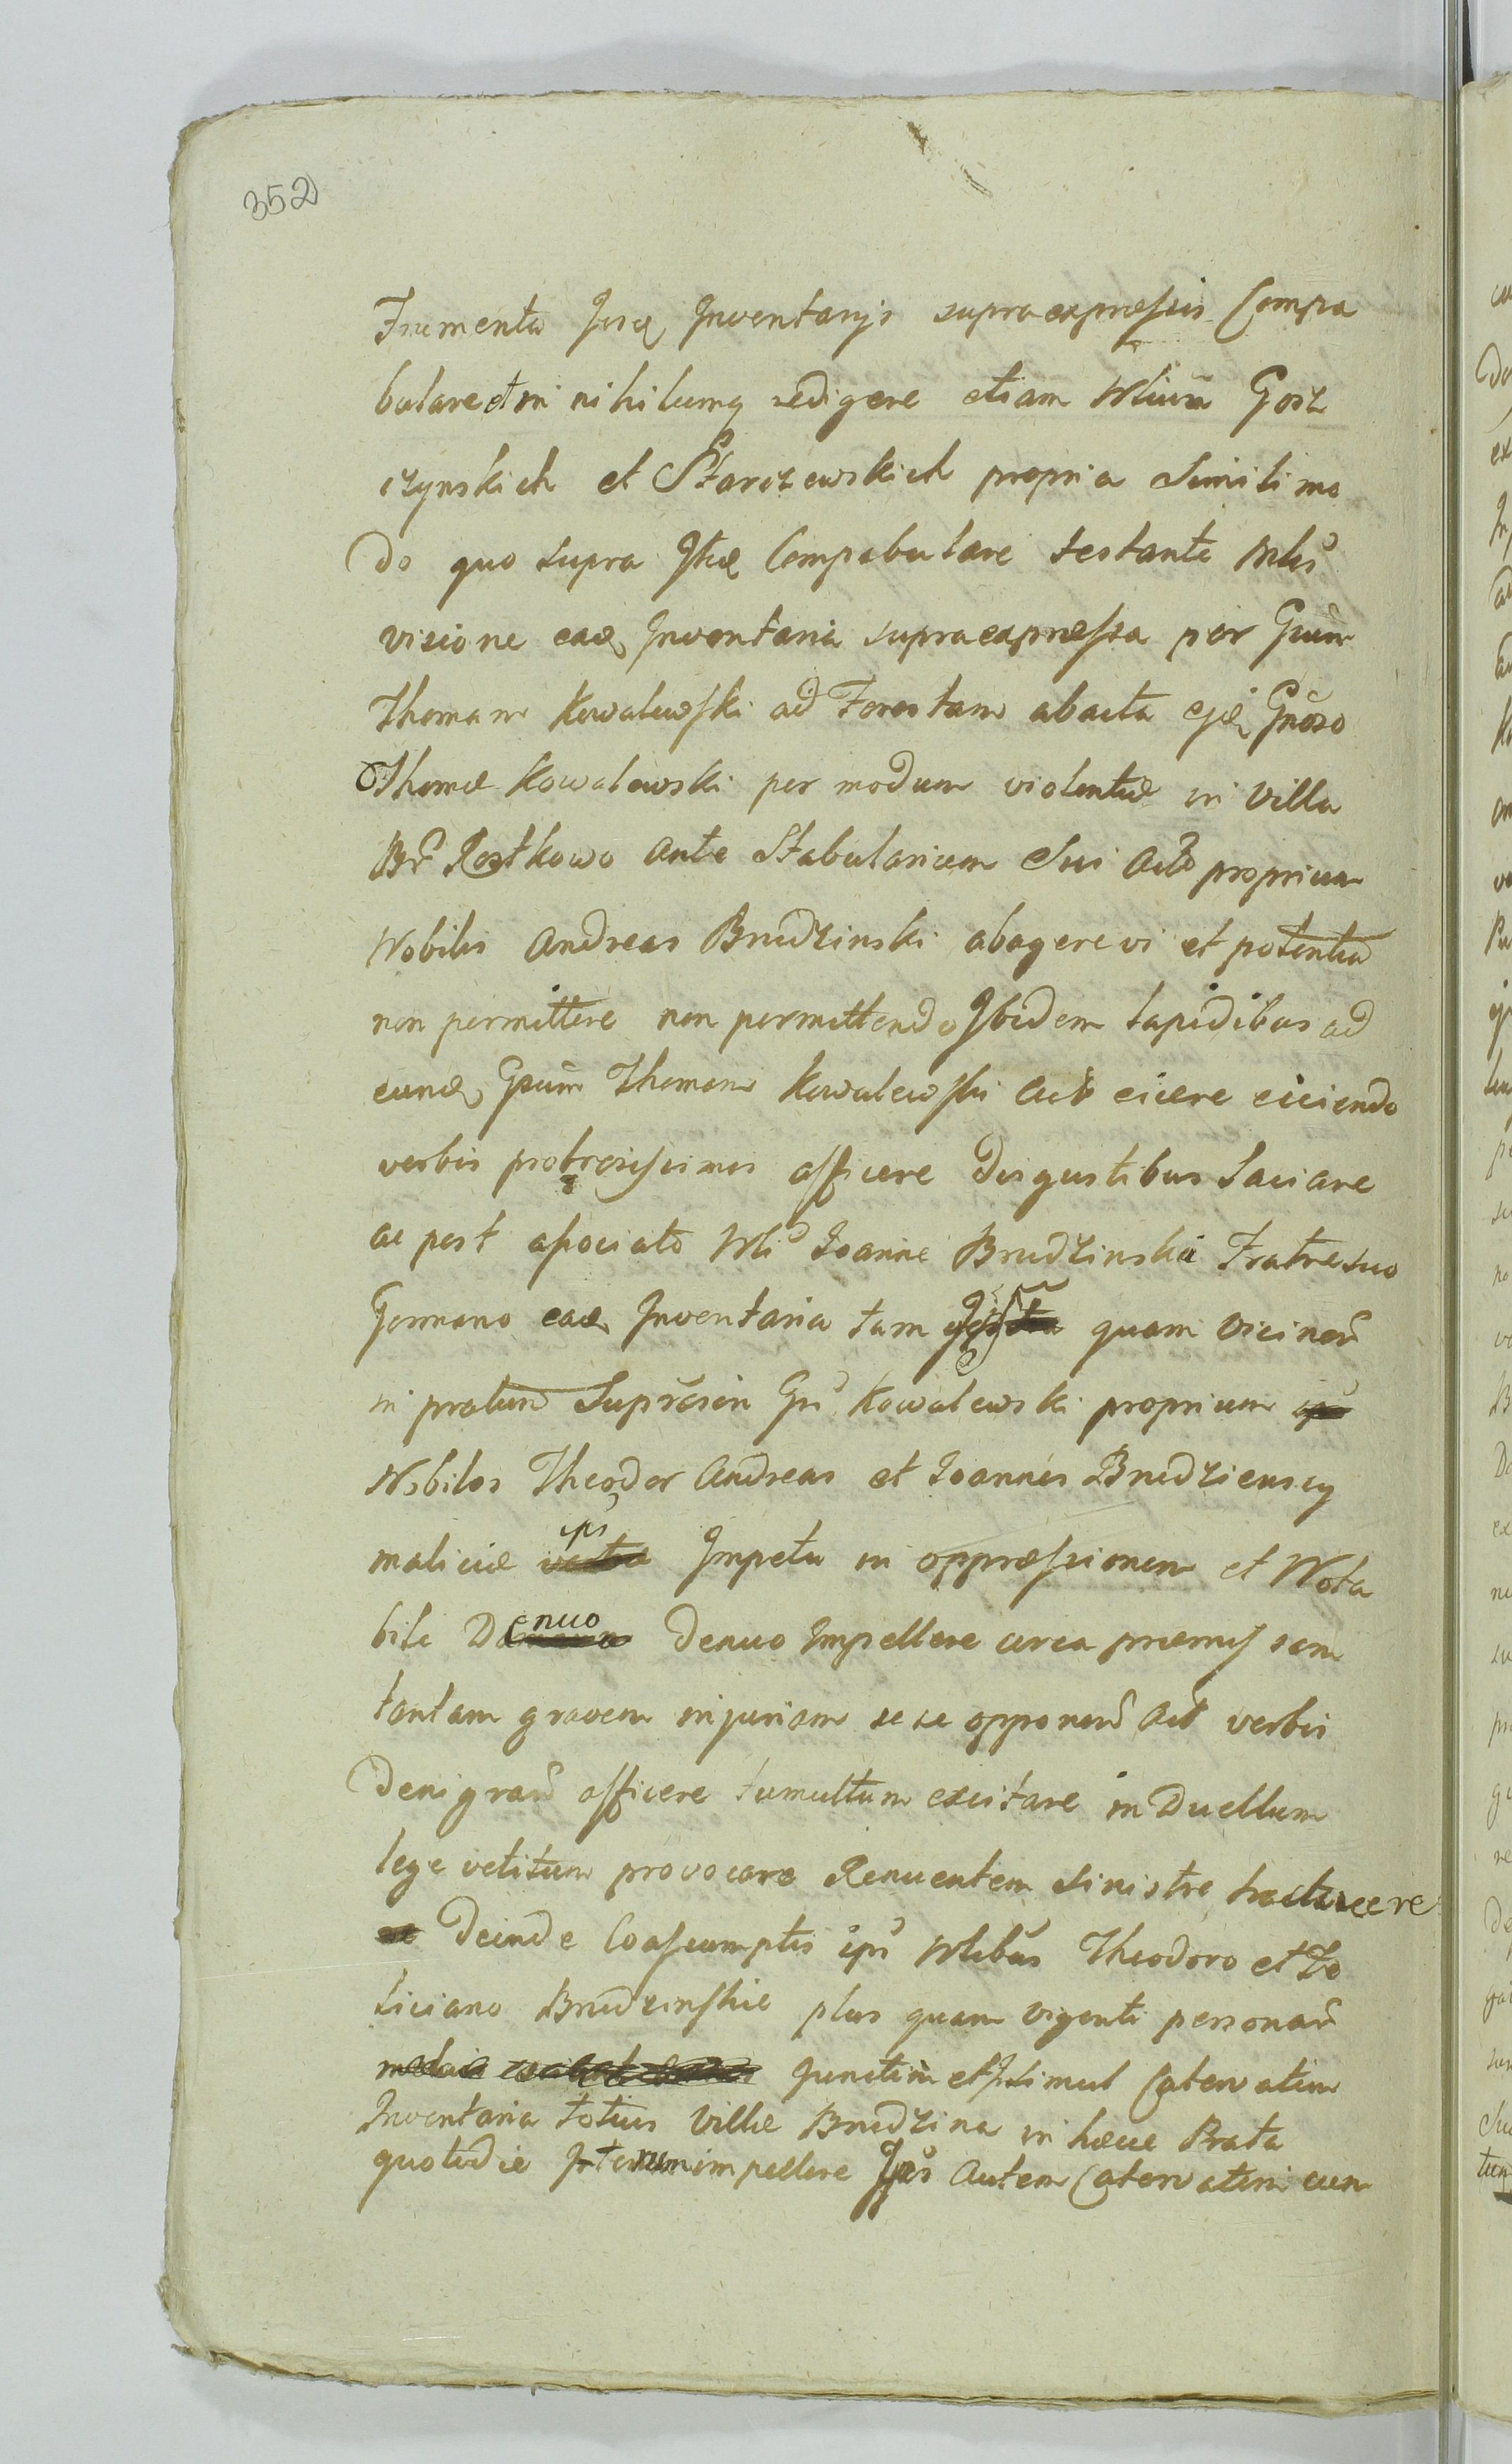 352
Frumenta Inventarijs supraexpressis Compa
bulare et in nihilumq redigere etiam Nlium Gosz
czynskich et Starczewskich propria Simili mo
do quo supra Compabulare testante Nlis
visione eadq Inventaria supraexpressa per Gnum
Thomam Kowalewski ad Forestam abacta Gnoso
Thomæ Kowalewski per modum violentiæ in Villa
Rostkowo ante Stabularium Sui Actō proprium
Nobilis Andreas Brudzinski abagere vi et potentia
non permittere non permittendo Ibidem lapidibus ad
eundq Gsum Thomam Kowalewski Actō eicere eiciendo
verbis probrosissimis afficere Disgustibus Saciare
ac post asociato Nli Joanne Brudzinski Fratre suo
Germano eadq Inventaria tam quam vicinorū
in pratum Suprēsen Gsi Kowalewski proprium
Nobiles Theodor Andreas et Joannes Brudzienscy
maliciæ ips Impetu in oppræssionem et Nota
bile enuo Denuo Impellere circa præmissorum
tantam gravem injuriam sese opponenō Actō verbis
Denigranō afficere tumultum excitare in Duellum
lege vetitum provocare Renuentem Sinistre
Deinde Coassumptis ipsi Nlibus Theodoro et Fe
liciano Brudzinskie plus quam viginti personarū
Junctim et Insimul Catervatim
Inventaria totius Villæ Brudzina in hæcce Prata
quotidie Iterum impellere Ipsi autem Catervatim cum